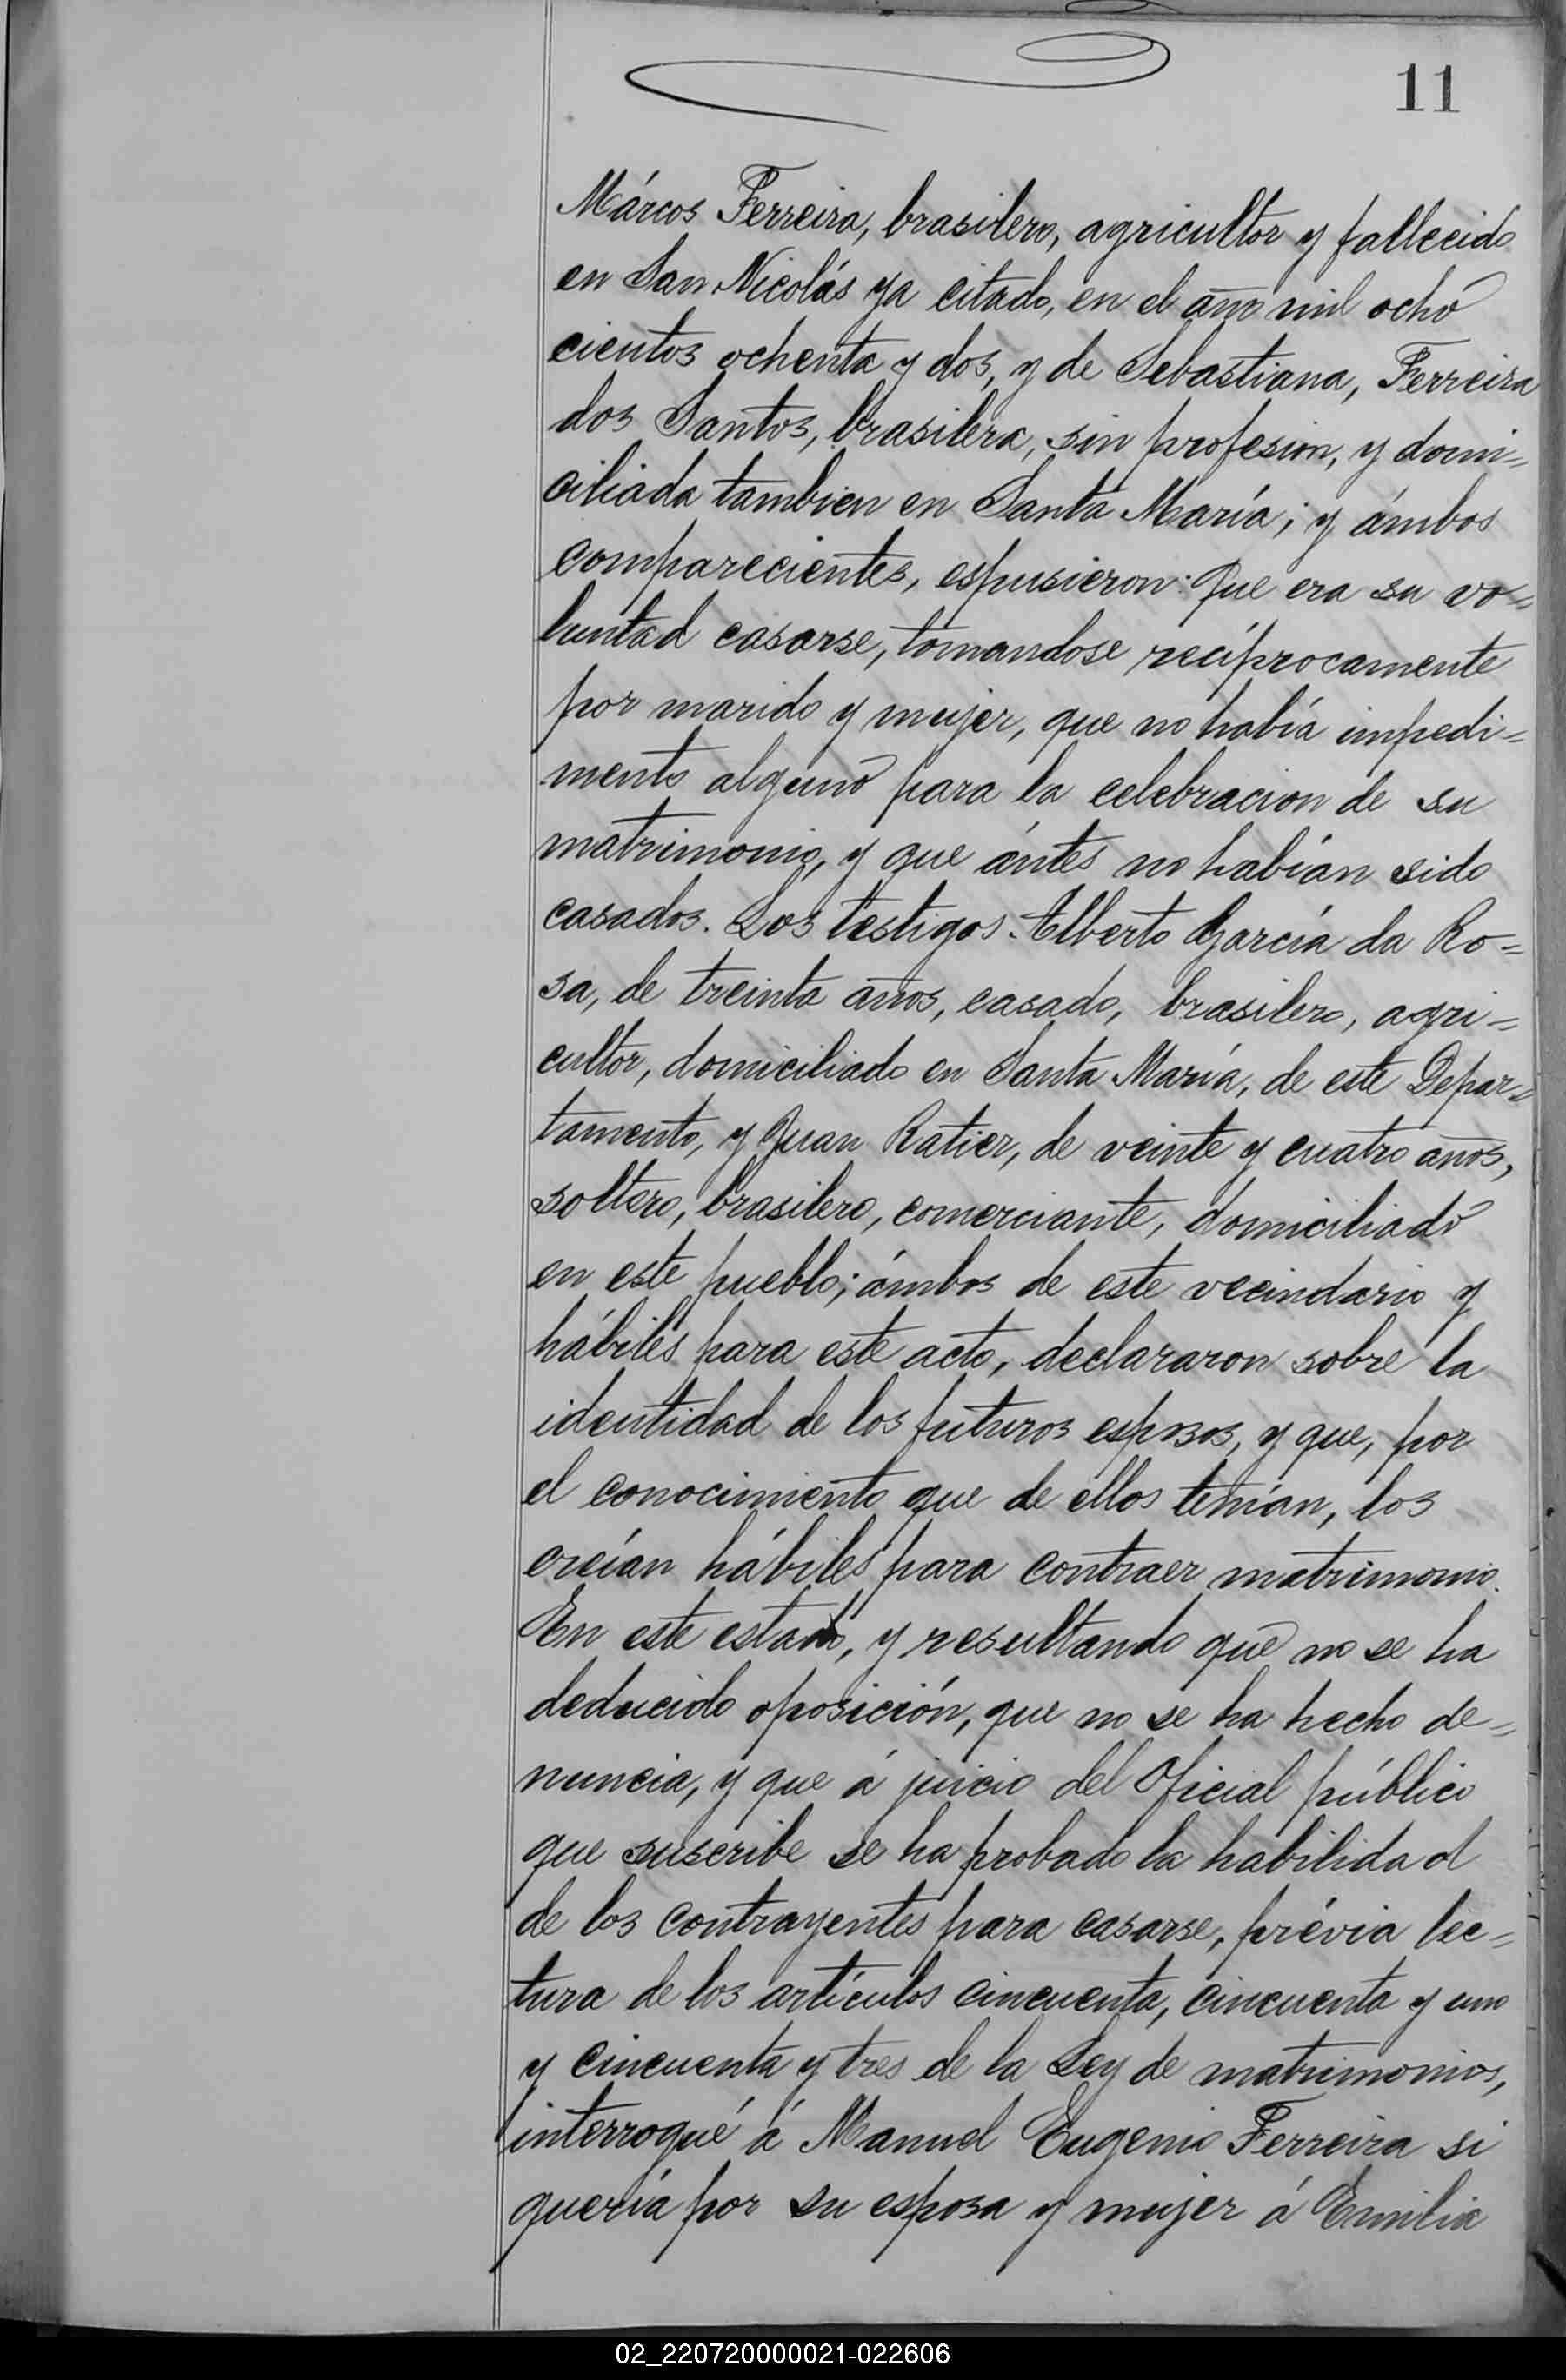 11
Márcos Ferreira, brasilero, agricultor y fallecido
en San Nicolás ya citado, en el año mil ocho
cientos ochenta y dos, y de Sebastiana, Ferreira
dos Santos, brasilera, sin profesion, y domi=
ciliada tambien en Santa María; y ámbos
comparecientes, espusieron: Que era su vo=
luntad casarse, tomandose recíprocamente
por marido y mujer, que no había impedi=
mento alguno para la celebracion de su
matrimonio, y que ántes no habían sido
casados. Los testigos Alberto García da Ro=
sa, de treinta años, casado, brasilero, agri=
cultor, domiciliado en Santa María, de este Depar=
tamento, y Juan Ratier, de veinte y cuatro años,
soltero, brasilero, comerciante, domiciliado
en este pueblo; ámbos de este vecindario y
hábiles para este acto, declararon sobre la
identidad de los futuros esposos, y que, por
el conocimiento que de ellos tenían, los
creían hábiles para contraer matrimonio.
En este estado, y resultando que no se ha
deducido oposición, que no se ha hecho de=
nuncia, y que á juicio del Oficial público
que suscribe se ha probado la habilidad
de los contrayentes para casarse, prévia lec=
tura de los artículos cincuenta, cincuenta y uno
y cincuenta y tres de la Ley de matrimonios,
interrogué á Manuel Eugenio Ferreira si
quería por su esposa y mujer á Emilia
02_220720000021-022606